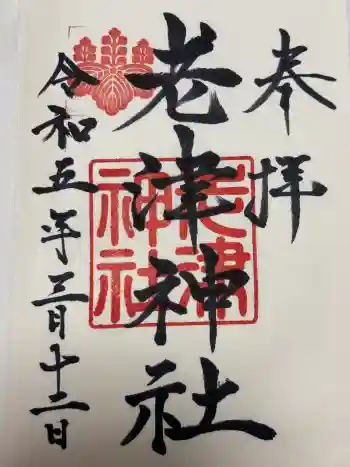 奉拝
老津神社
老津
神社
令和五年三月十二日